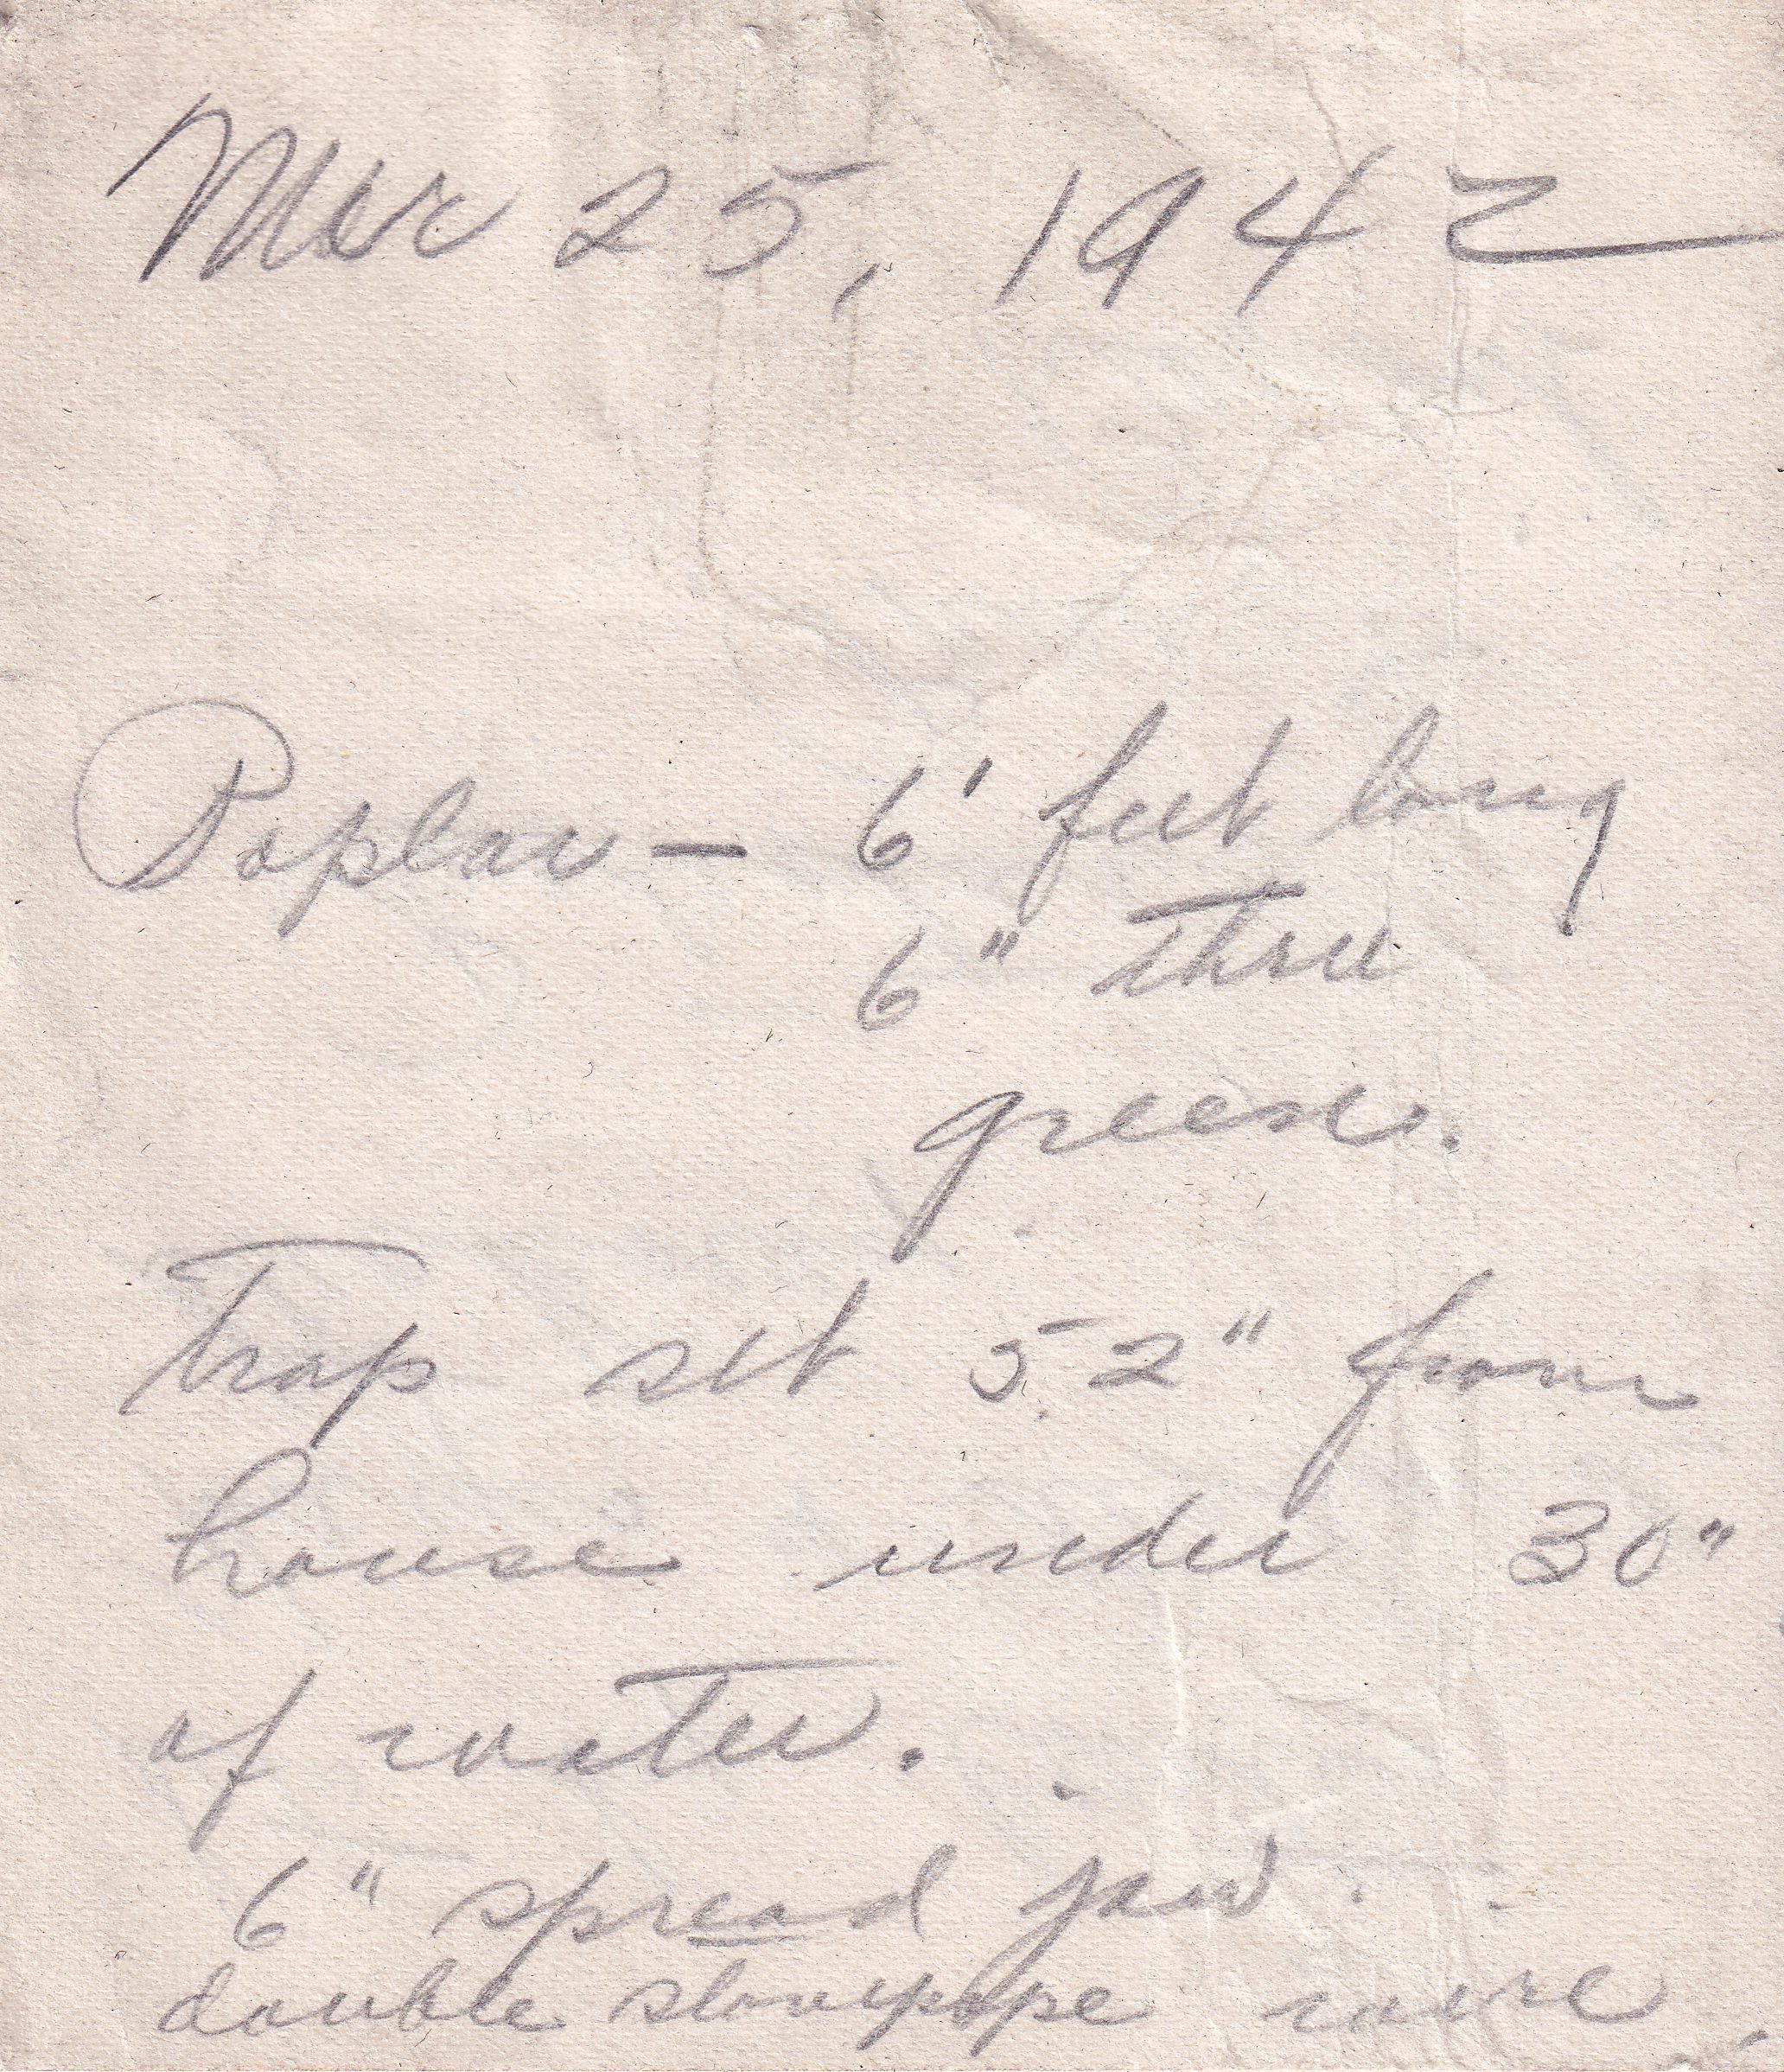 Mar 25, 1942
Poplar — 6' feet long
6" thru
green.
Trap set 52" from
house under 30"
of water.
6" spread jaw.
double stovepipe wire